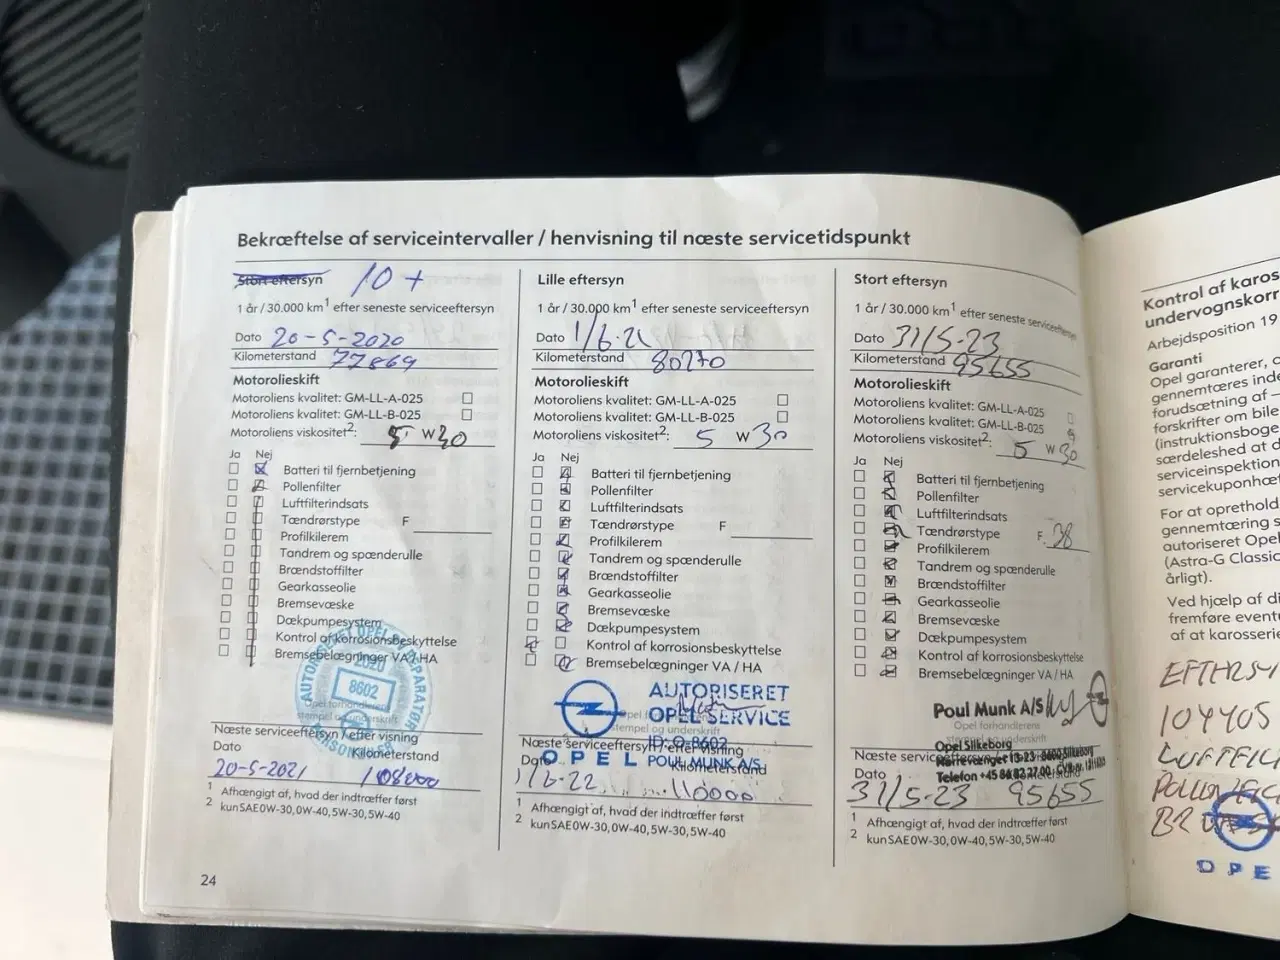 Bekræftelse af serviceintervaller / henvisning til næste servicetidspunkt
Stort eftersyn 10+
1 år / 30.000 km¹ efter seneste serviceeftersyn
Dato 20-5-2020
Kilometerstand 77869
Motorolieskift
Motoroliens kvalitet: GM-LL-A-025
Motoroliens kvalitet: GM-LL-B-025
Motoroliens viskositet²: 5 W 30
Ja Nej
Batteri til fjernbetjening
Pollenfilter
Luftfilterindsats
Tændrørstype F
Profilkilerem
Tandrem og spænderulle
Brændstoffilter
Gearkasseolie
Bremsevæske
Dækpumpesystem
Kontrol af korrosionsbeskyttelse
Bremsebelægninger VA / HA
AUTORISERET OPEL REPARATØR
2020
8602
Opel forhandlerens
stempel og underskrift
Næste serviceeftersyn / efter visning
Dato Kilometerstand
20-5-2021 108000
1 Afhængigt af, hvad der indtræffer først
2 kun SAE 0W-30, 0W-40, 5W-30, 5W-40
24
Lille eftersyn
1 år / 30.000 km¹ efter seneste serviceeftersyn
Dato 1/6-21
Kilometerstand 80270
Motorolieskift
Motoroliens kvalitet: GM-LL-A-025
Motoroliens kvalitet: GM-LL-B-025
Motoroliens viskositet²: 5 W 30
Ja Nej
Batteri til fjernbetjening
Pollenfilter
Luftfilterindsats
Tændrørstype F
Profilkilerem
Tandrem og spænderulle
Brændstoffilter
Gearkasseolie
Bremsevæske
Dækpumpesystem
Kontrol af korrosionsbeskyttelse
Bremsebelægninger VA / HA
AUTORISERET
OPEL SERVICE
ID: O-8602
OPEL POUL MUNK A/S
stempel og underskrift
Næste serviceeftersyn / efter visning
Dato Kilometerstand
1/6-22 110000
1 Afhængigt af, hvad der indtræffer først
2 kun SAE 0W-30, 0W-40, 5W-30, 5W-40
Stort eftersyn
1 år / 30.000 km¹ efter seneste serviceeftersyn
Dato 31/5-23
Kilometerstand 95655
Motorolieskift
Motoroliens kvalitet: GM-LL-A-025
Motoroliens kvalitet: GM-LL-B-025
Motoroliens viskositet²: 5 W 30
Ja Nej
Batteri til fjernbetjening
Pollenfilter
Luftfilterindsats
Tændrørstype F 38
Profilkilerem
Tandrem og spænderulle
Brændstoffilter
Gearkasseolie
Bremsevæske
Dækpumpesystem
Kontrol af korrosionsbeskyttelse
Bremsebelægninger VA / HA
Poul Munk A/S
Opel forhandlerens
stempel og underskrift
Opel Silkeborg
Nørrevænget 13-23 - 8600 Silkeborg
Telefon +45 86 82 27 00
Næste
Dato
31/5-23 95655
1 Afhængigt af, hvad der indtræffer først
2 kun SAE 0W-30, 0W-40, 5W-30, 5W-40
Kontrol af karos
undervognskorr
Arbejdsposition 19
Garanti
Opel garanterer, a
gennemtæres inde
forudsætning af –
forskrifter om bile
(instruktionsboge
særdeleshed at d
serviceinspektion
servicekuponhæt
For at oprethold
gennemtæring s
autoriseret Opel
(Astra-G Classic
årligt).
Ved hjælp af di
fremføre eventu
af at karosserie
EFTERSY
104405
LUFTFIL
OPE